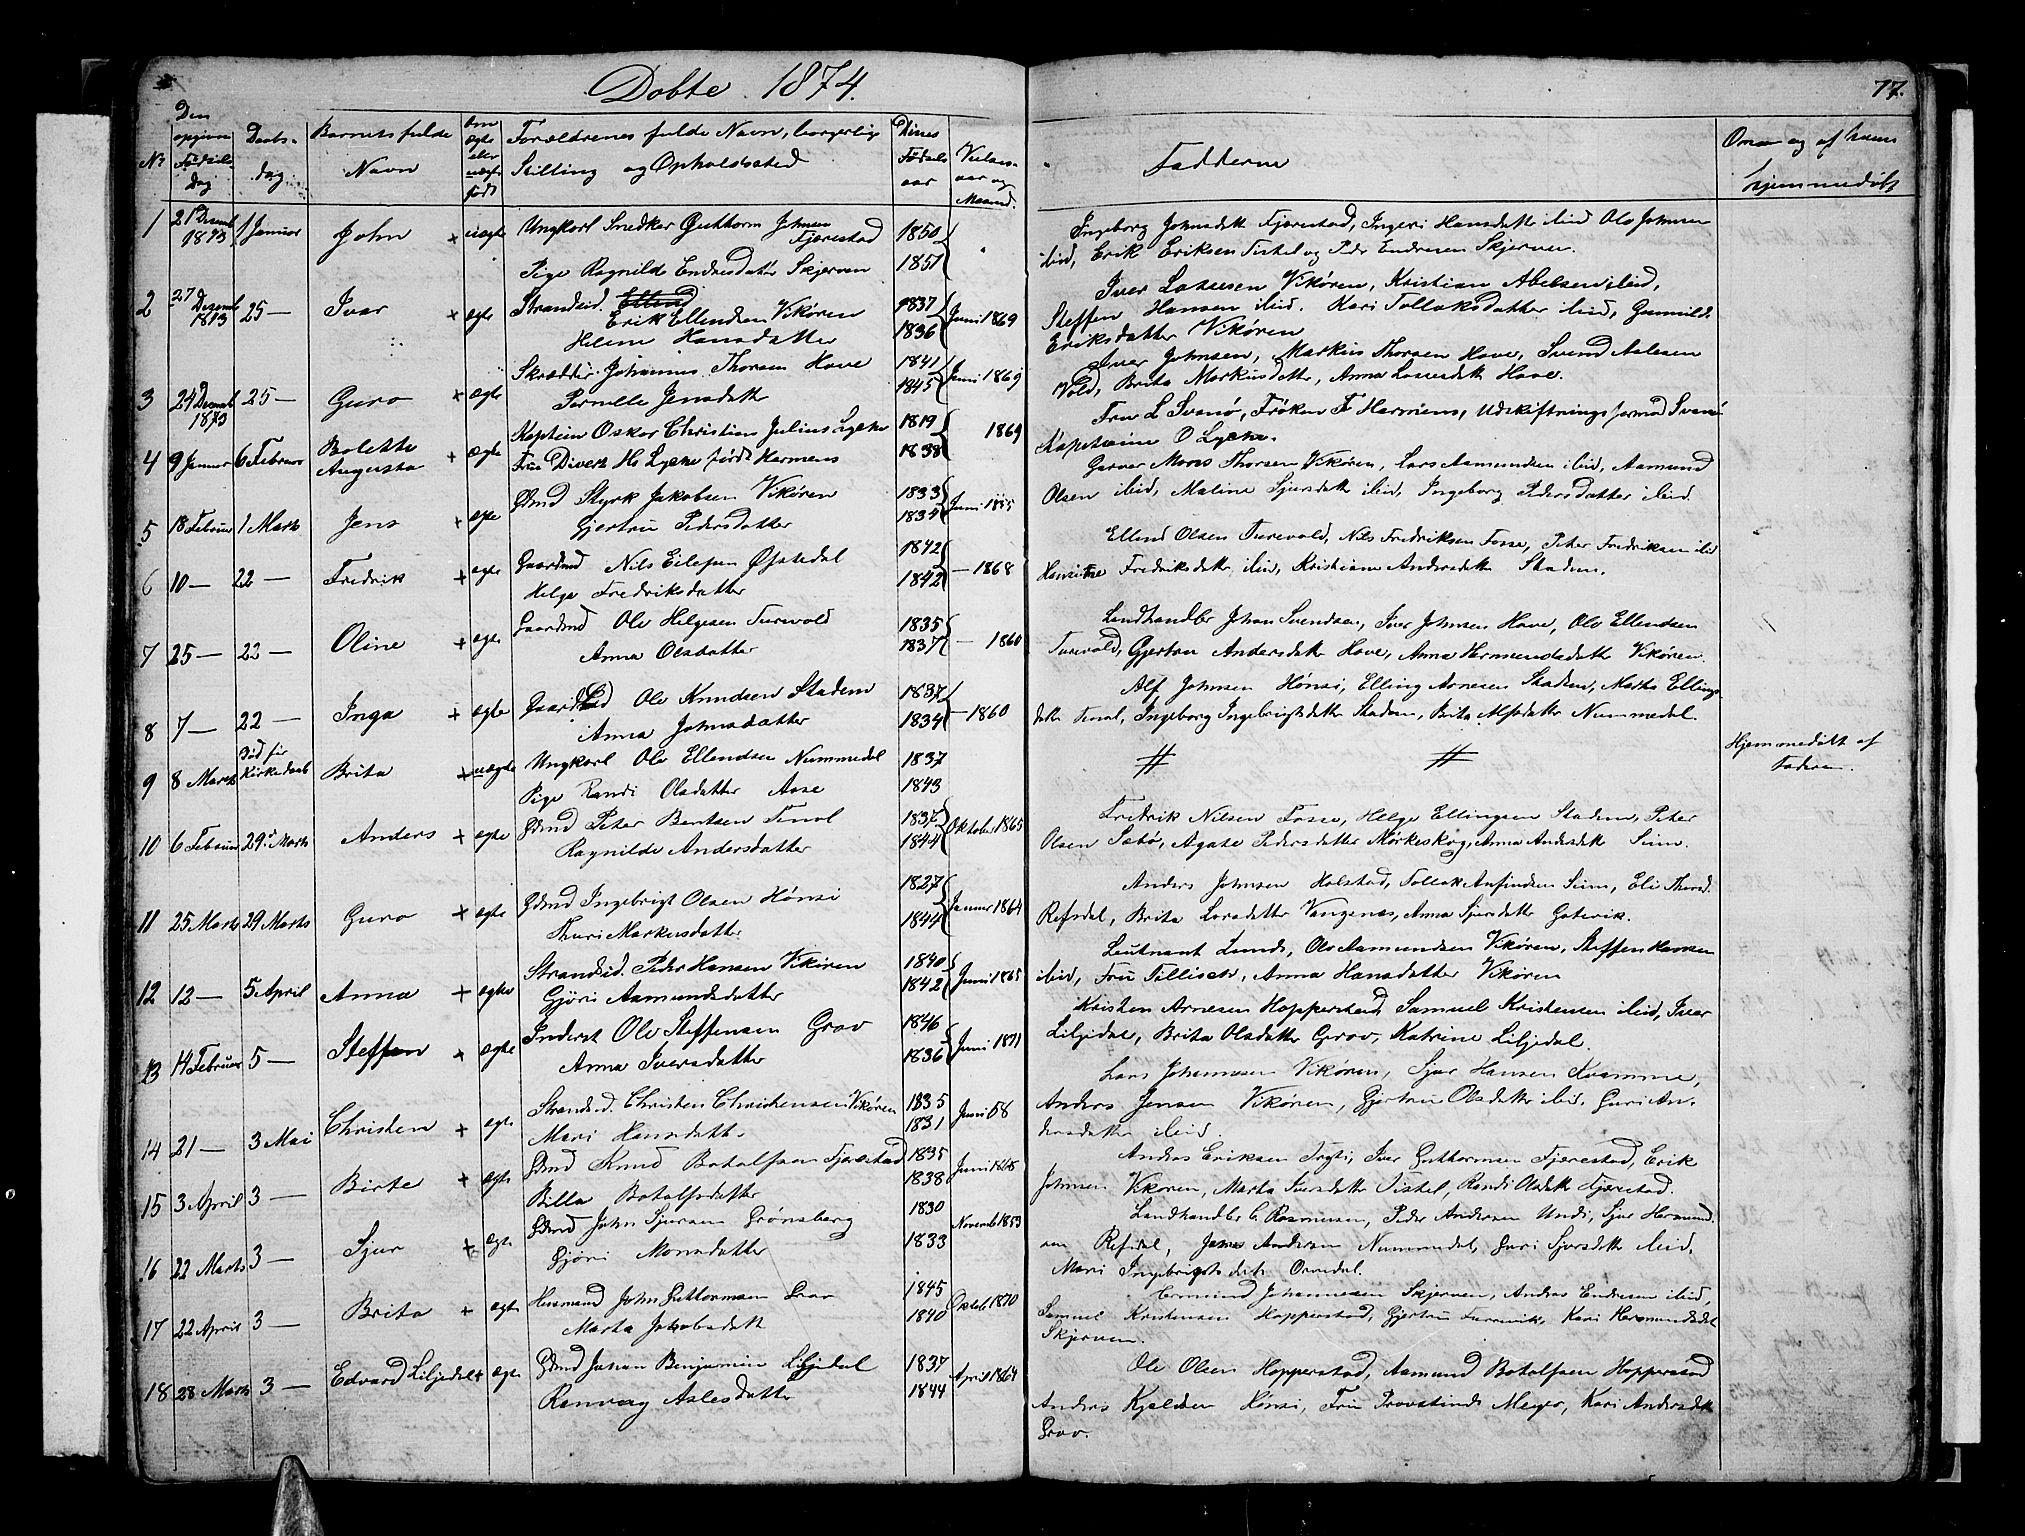 Døbte 1874.
77.
No
Den opgivne Fødsels-Dag
Daabs-dag
Barnets fulde Navn
Om ægte eller uægte født
Forældrenes fulde Navn, borgerlige Stilling og Opholdssted
Dines Fødsels aar
Vielses-aar og Maaned.
Fadderne
Om og af hvem hjemmedøbt
1 21 Decemb 1873 1 Januar John + uægte Ungkarl Snedker Guttorm Johnsen Fjærestad 1850
Pige Ragnilde Endresdatter Skjerven 1851
Ingeborg Johnsdtt Fjærestad, Ingeri Hansdatter ibid Ole Johnsen
ibid, Erik Eriksen Tistel og Peder Endresen Skjerven.
2 27 Decemb 1873 25 — Ivar + ægte Strandsid. Erik Ellendsen Vikøren 1837 Juni 1869
Helene Hansdatter 1836
Iver Lassesen Vikøren, Kristian Abelsen ibid,
Steffen Hansen ibid. Kari Tollaksdatter ibid, Gunnild
Eriksdatter Vikøren
3 24 Decemb 1873 25 — Guro + ægte Skrædder Johannes Thorsen Hove 1841 Juni 1869
Pernille Jensdatter 1845
Iver Johnsen, Markus Thorsen Hove, Svend Aslesen
Vold, Brita Markusdatter, Anna Lassesdtt Hove.
4 9 Januar 6 Februar Bolette Augusta + ægte Kaptein Oskar Christian Julius Lycke 1819 1869
Fru Divert Ms Lycke født Harmens 1838
Fru L Svanø, Frøken F Harmens, Udskiftningsformand Svanø
Kapteine O Lycke.
5 18 Februar 1 Marts Jens + ægte Gdmd Styrk Jakobsen Vikøren 1833 Juni 1855
Gjertru Pedersdatter 1834
Garver Mons Thorsen Vikøren, Lars Aamundsen ibid, Aamund
Olsen ibid, Maline Sjursdatter ibid, Ingeborg Pedersdatter ibid.
6 10 — 22 — Fredrik + ægte Gaardmd Nils Eilefsen Øfstedal 1842 — 1868
Helge Fredriksdatter 1842
Ellend Olsen Turvold, Nils Fredriksen Fosse, Peter Fredriksen ibid
Fredriksdatter ibid, Kristiane Andersdatter Stadem.
7 25 — 22 — Oline + ægte Gaardmd Ole Helgesen Turvold 1835 — 1860
Anna Olsdatter 1837
Landhandler Johan Svendsen, Iver Johnsen Hove, Ole Ellendsen
Turvold, Gjertru Andersdatter Hove, Anna Hermundsdatter Vikøren.
8 7 — 22 — Inga + ægte Gaardmd Ole Knudsen Stadem 1837 — 1860
Anna Johnsdatter 1834
Alf Johnsen Hønsi, Elling Arnesen Stadem, Marta Ellings
datter Tenal, Ingeborg Ingebrigtsdatter Stadem, Brita Alfsdatter Nummedal.
9 8 Marts Død før Kirkedaab Brita + uægte Ungkarl Ole Ellendsen Nummedal 1837
Pige Randi Olsdatter Aase 1843
# # Hjemmedøbt af Faderen.
10 6 Februar 29 Marts Anders + ægte Gdmd Peter Bentsen Tenal 1837 Oktober 1865
Ragnilde Andersdatter 1844
Fredrik Nilsen Fosse, Helge Ellingsen Stadem, Peter
Olsen Sæbø, Agate Pedersdatter Mørkeskog, Anna Andersdtt Seim.
11 25 Marts 29 Marts Guro + ægte Gdmd Ingebrigt Olsen Hønsi 1827 Januar 1864
Thuri Markusdatter 1844
Anders Johnsen Holstad, Tollak Anfindsen Seim, Eli Thorsd.
Refsdal, Brita Larsdatter Vangenæs, Anna Sjursdatter Gotevik.
12 12 — 5 April Anna + ægte Strandsid. Peder Hansen Vikøren 1840 Juni 1865
Gjøri Aamundsdatter 1842
Leutnant Lund, Ole Aamundsen Vikøren, Steffen Hansen
ibid, Fru Tillisch, Anna Hansdatter Vikøren
13 14 Februar 5 — Steffen + ægte Inderst Ole Steffensen Grov 1846 Juni 1871
Anna Iversdatter 1836
Kristen Arnesen Hopperstad, Samuel Kristensen ibid, Iver
Liljedal, Brita Olsdatter Grov, Katrine Liljedal.
14 21 — 3 Mai Christen + ægte Strandsid. Christen Christensen Vikøren 1835 Juni 58
Mari Hansdatter 1831
Lars Johannesen Vikøren, Sjur Hansen Kvamme,
Anders Jensen Vikøren, Gjertru Olsdatter ibid, Guri An-
dersdatter ibid.
15 3 April 3 — Birte + ægte Gdmd Knud Botolfsen Fjærestad 1835 Juni 1868
Billa Botolfsdatter 1838
Anders Eriksen Tryti, Iver Guttormsen Fjærestad, Erik
Johnsen Vikøren, Marta Iversdatter Tistel, Randi Olsdtt Fjærestad.
16 22 Marts 3 — Sjur + ægte Gdmd John Sjursen Grønsberg 1830 Novemb 1853
Gjøri Monsdatter 1833
Landhandler C. Rasmussen, Peder Andersen Undi, Sjur Hermund.
sen Refsdal, Jens Andersen Nummedal, Guri Sjursdtt ibid,
Mari Ingebrigtsdatter Ormdal.
17 22 April 3 — Brita + ægte Husmand John Guttormsen Grov 1845 Oktob 1870
Marta Jakobsdatt 1840
Ermund Johannesen Skjerven, Anders Endresen ibid,
Samuel Kristensen Hopperstad, Gjertru Turvik, Kari Hermundsdtt
Skjerven.
18 28 Marts 3 — Edvard Liljedal + ægte Gdmd Johan Benjamin Liljedal 1837 April 1864
Ranveig Aslesdatter 1844
Ole Olsen Hopperstad, Aamund Botolfsen Hopperstad
Anders Kjeldsen Hønsi, Fru Provstinde Meyer, Kari Andersdtt
Grov.